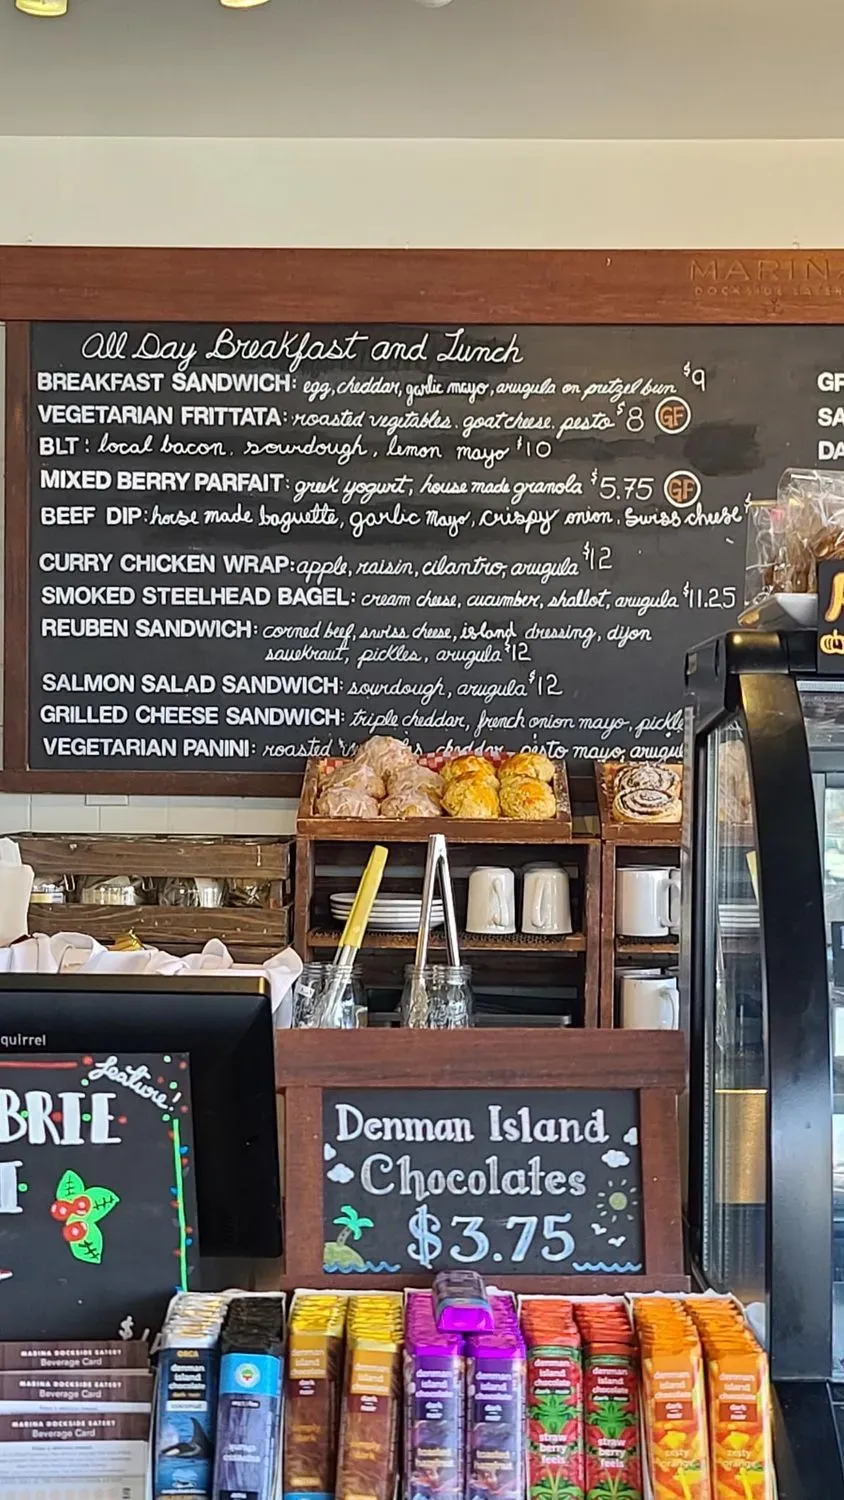 MARINA
DOCKSIDE EATERY
All Day Breakfast and Lunch
BREAKFAST SANDWICH: egg, cheddar, garlic mayo, arugula on pretzel bun $9
VEGETARIAN FRITTATA: roasted vegetables, goat cheese, pesto $8 GF
BLT: local bacon, sourdough, lemon mayo $10
MIXED BERRY PARFAIT: greek yogurt, house made granola $5.75 GF
BEEF DIP: house made baguette, garlic mayo, crispy onion, swiss cheese $
CURRY CHICKEN WRAP: apple, raisin, cilantro, arugula $12
SMOKED STEELHEAD BAGEL: cream cheese, cucumber, shallot, arugula $11.25
REUBEN SANDWICH: corned beef, swiss cheese, island dressing, dijon
sauekraut, pickles, arugula $12
SALMON SALAD SANDWICH: sourdough, arugula $12
GRILLED CHEESE SANDWICH: triple cheddar, french onion mayo, pickle
VEGETARIAN PANINI: roasted cheddar, pesto mayo, arugu
GF
SA
DA
quirrel
feature!
BRIE
Denman Island
Chocolates
$3.75
MARINA DOCKSIDE EATERY
Beverage Card
MARINA DOCKSIDE EATERY
Beverage Card
MARINA DOCKSIDE EATERY
Beverage Card
ORCA
denman
island
chocolate
coconut
denman
island
chocolate
dark
noir
denman
island
chocolate
dark
noir
toasted
hazelnut
denman
island
chocolate
dark
noir
straw
berry
feels
denman
island
chocolate
dark
noir
zesty
orange